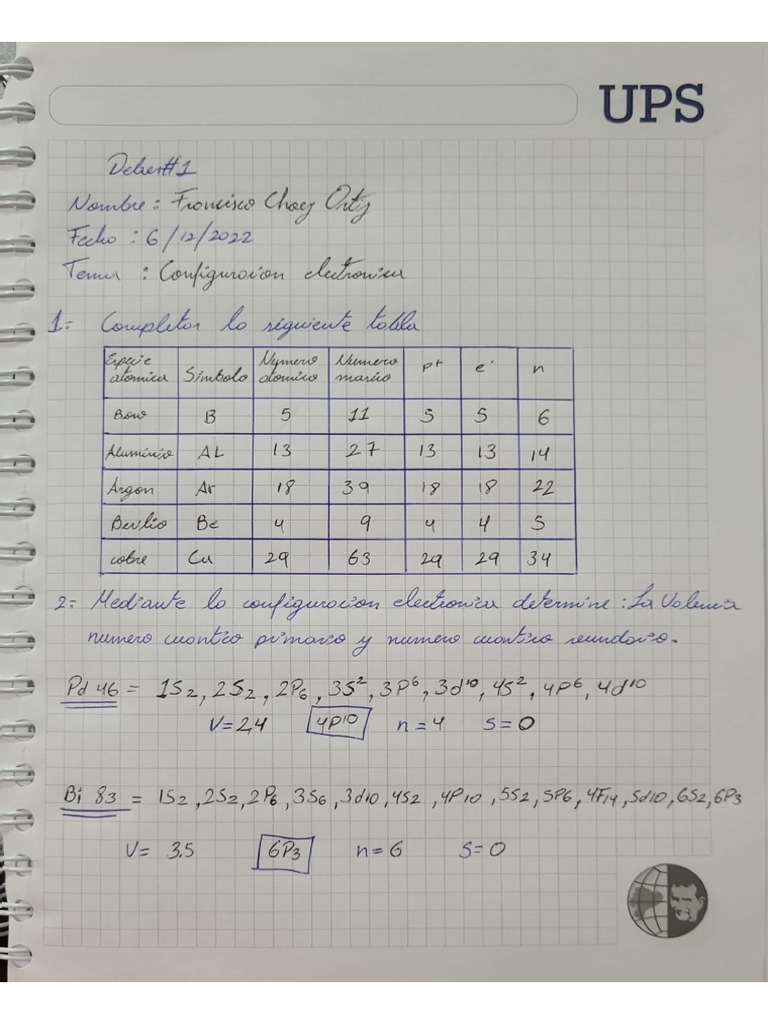 UPS
Deber#1
Nombre: Francisco Chaez Ortiz
Fecha: 6/12/2022
Tema: Configuracion electronica
1= Completar la siguiente tabla
Especie atomica Símbolo Numero atomico Numero masico p+ e- n
Boro B 5 11 5 5 6
Aluminio AL 13 27 13 13 14
Argon Ar 18 39 18 18 22
Berilio Be 4 9 4 4 5
cobre Cu 29 63 29 29 34
2= Mediante la configuracion electronica determine: La Valencia
numero cuantico primario y numero cuantico secundario.
Pd 46 = 1S2, 2S2, 2P6, 3S², 3P⁶, 3d¹⁰, 4S², 4P⁶, 4d¹⁰
V=2,4 4P¹⁰ n=4 S=0
Bi 83 = 1S2, 2S2, 2P6, 3S6, 3d10, 4S2, 4P10, 5S2, 5P6, 4F14, 5d10, 6S2, 6P3
V= 3.5 6P3 n=6 S=0